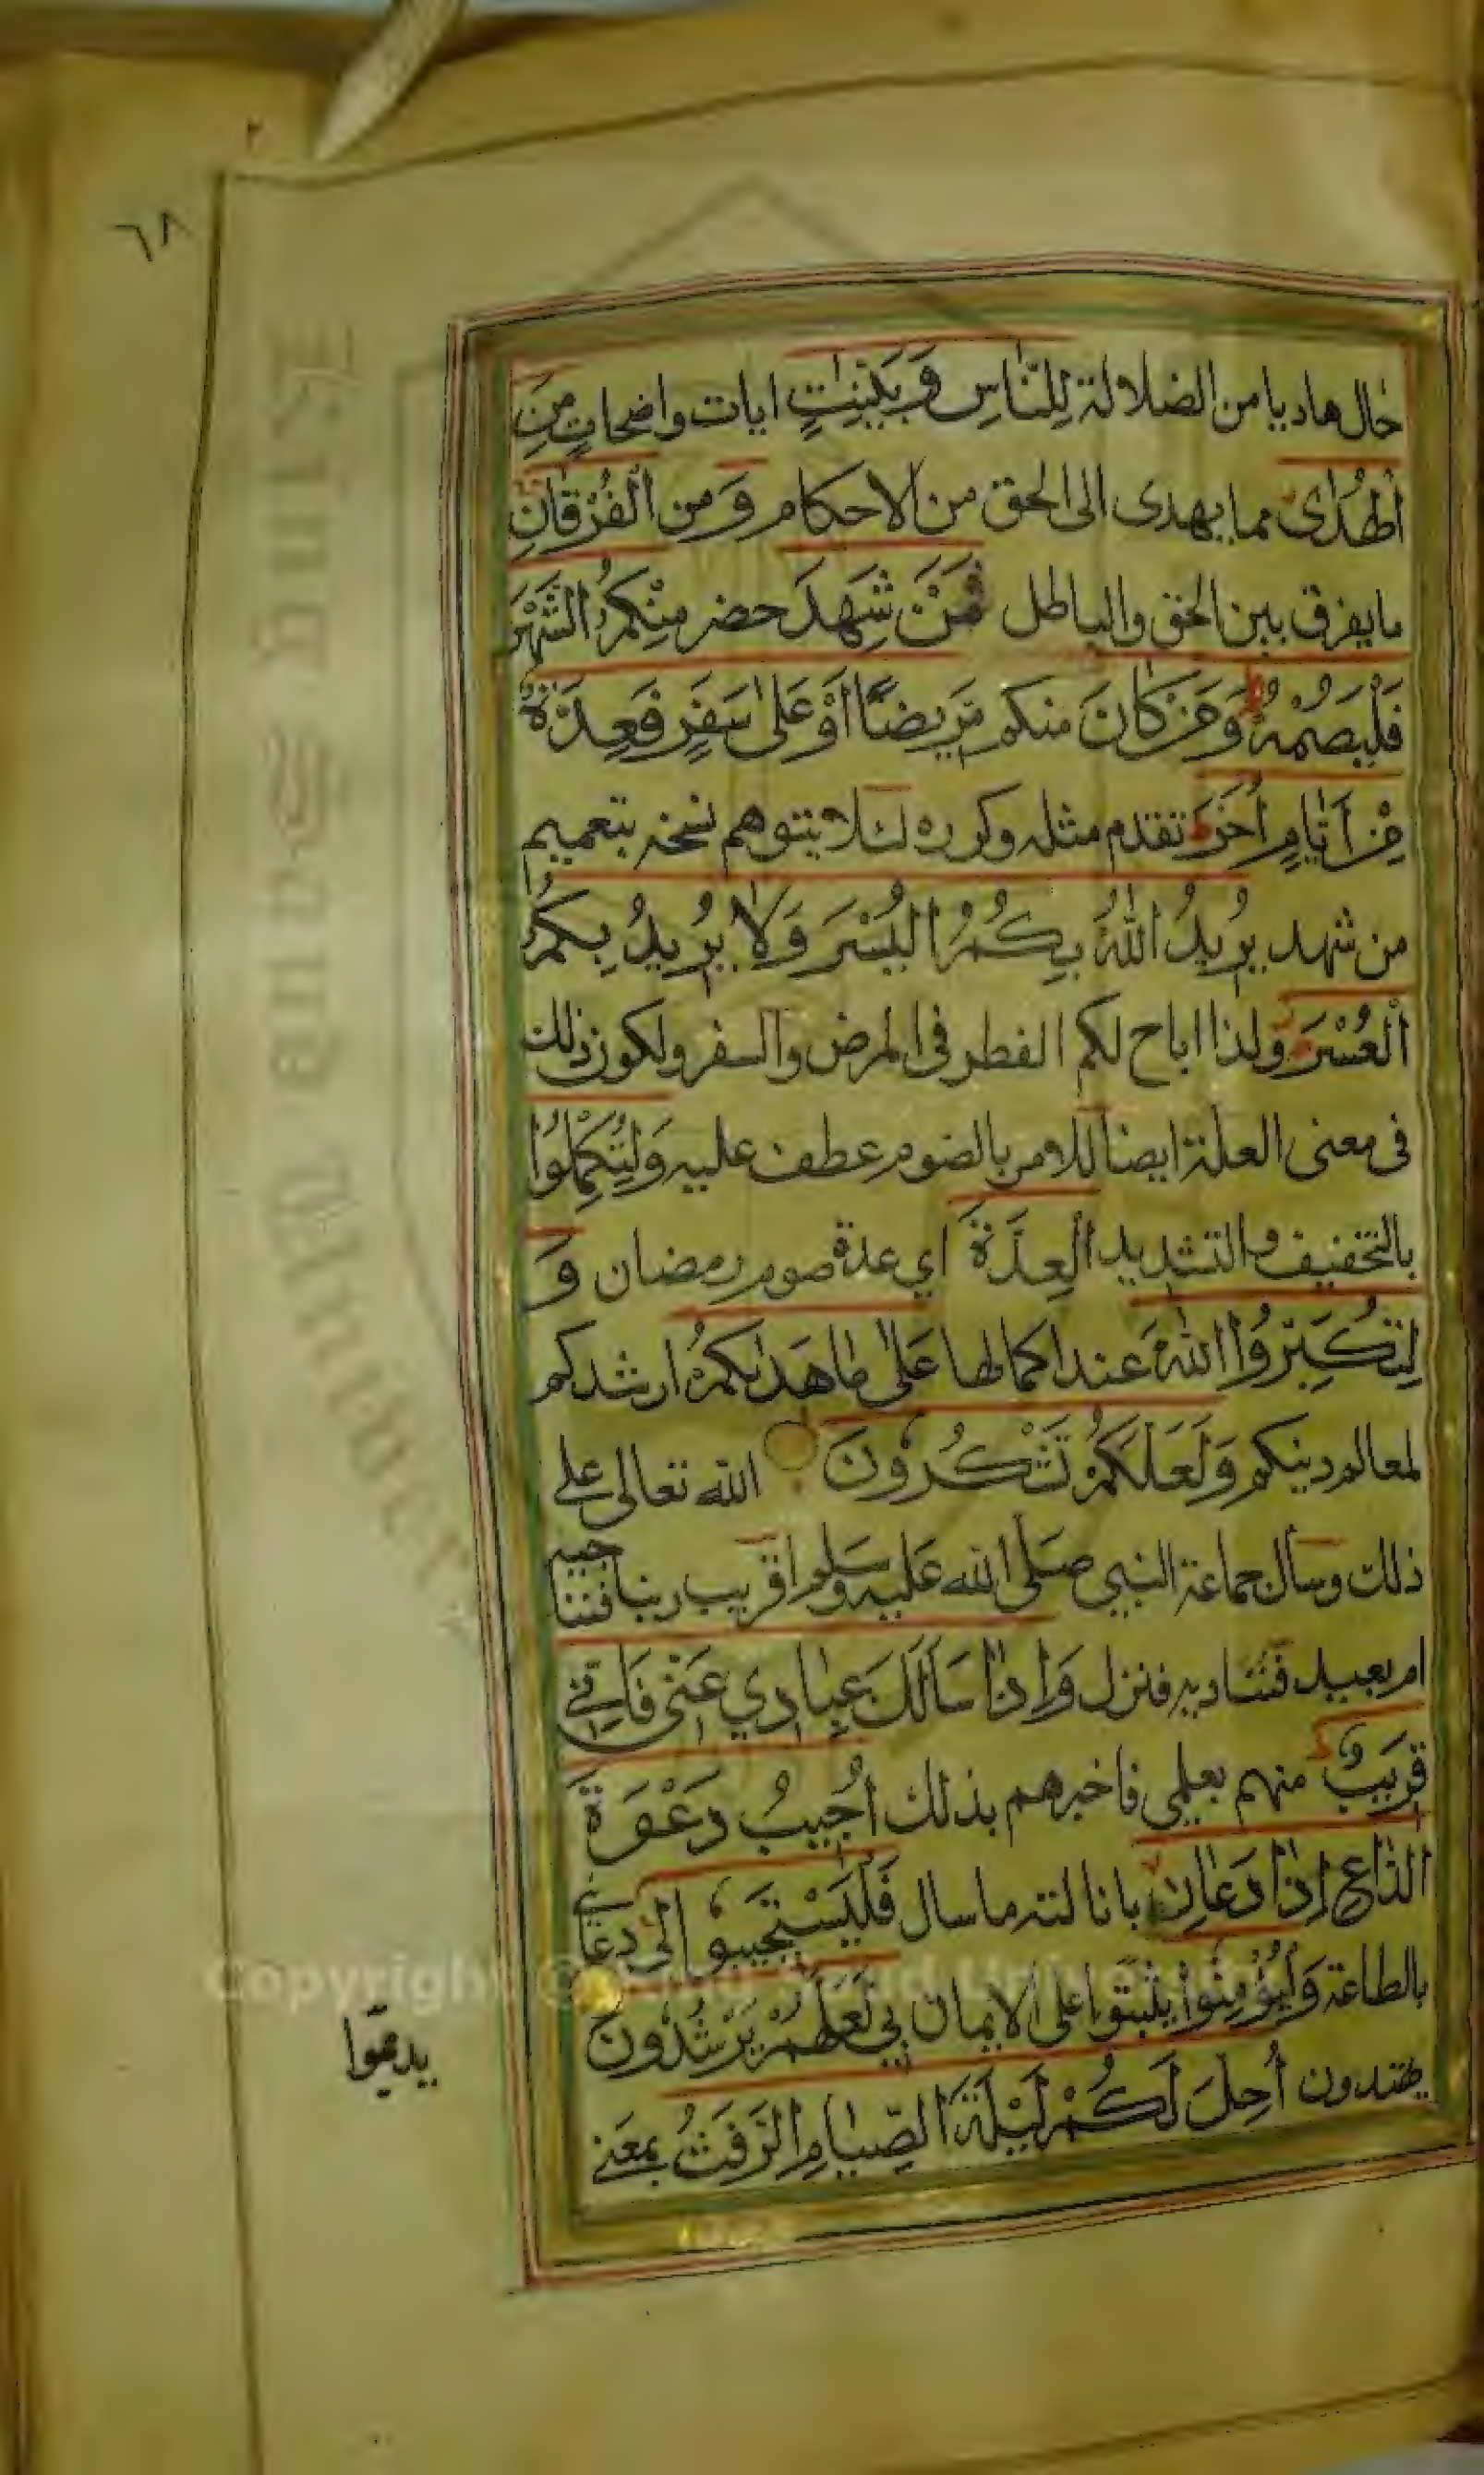 ٢
٦٨
حال هاديا من الضلالة لِلنَّاسِ وَبَيِّنٰتٍ ايات واضحات مِنَ
الْهُدٰى مما يهدى الى الحق من الاحكام وَ من الْفُرْقَانِ
ما يفرق بين الحق والباطل فَمَنْ شَهِدَ حضر مِنْكُمُ الشَّهْرَ
فَلْيَصُمْهُ وَمَنْ كَانَ منكم مَرِيضًا اَوْ عَلٰى سَفَرٍ فَعِدَّةٌ
مِنْ اَيَّامٍ اُخَرَ تقدم مثله وكرره لئلا يتوهم نسخه بتعميم
من شهد يُرِيدُ اللّٰهُ بِكُمُ الْيُسْرَ وَلَا يُرِيدُ بِكُمُ
الْعُسْرَ ولذا اباح لكم الفطر فى المرض والسفر ولكون ذلك
فى معنى العلة ايضا للامر بالصوم عطف عليه وَلِتُكْمِلُوا
بالتخفيف والتشديد الْعِدَّةَ اي عدة صوم رمضان وَ
لِتُكَبِّرُوا اللّٰهَ عند اكمالها عَلٰى مَا هَدٰىكُمْ ارشدكم
لمعالم دينكم وَلَعَلَّكُمْ تَشْكُرُونَ الله تعالى على
ذلك وسأل جماعة النبي صَلَّى الله عَلَيْهِ وَسَلم اقريب ربنا فنناجيه
ام بعيد فنناديه فنزل وَاِذَا سَاَلَكَ عِبَادِي عَنِّى فَاِنِّي
قَرِيبٌ منهم بعلمي فاخبرهم بذلك اُجِيبُ دَعْوَةَ
الدَّاعِ اِذَا دَعَانِ بانالته ما سال فَلْيَسْتَجِيبُوا لِي دعائي
بالطاعة وَلْيُؤْمِنُوا يثبتوا على الايمان بِي لَعَلَّهُمْ يَرْشُدُونَ
يهتدون اُحِلَّ لَكُمْ لَيْلَةَ الصِّيَامِ الرَّفَثُ بمعنى
Copyright © King Saud University